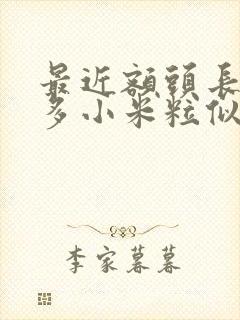 最近額頭長
多小米粒似
李家暮暮